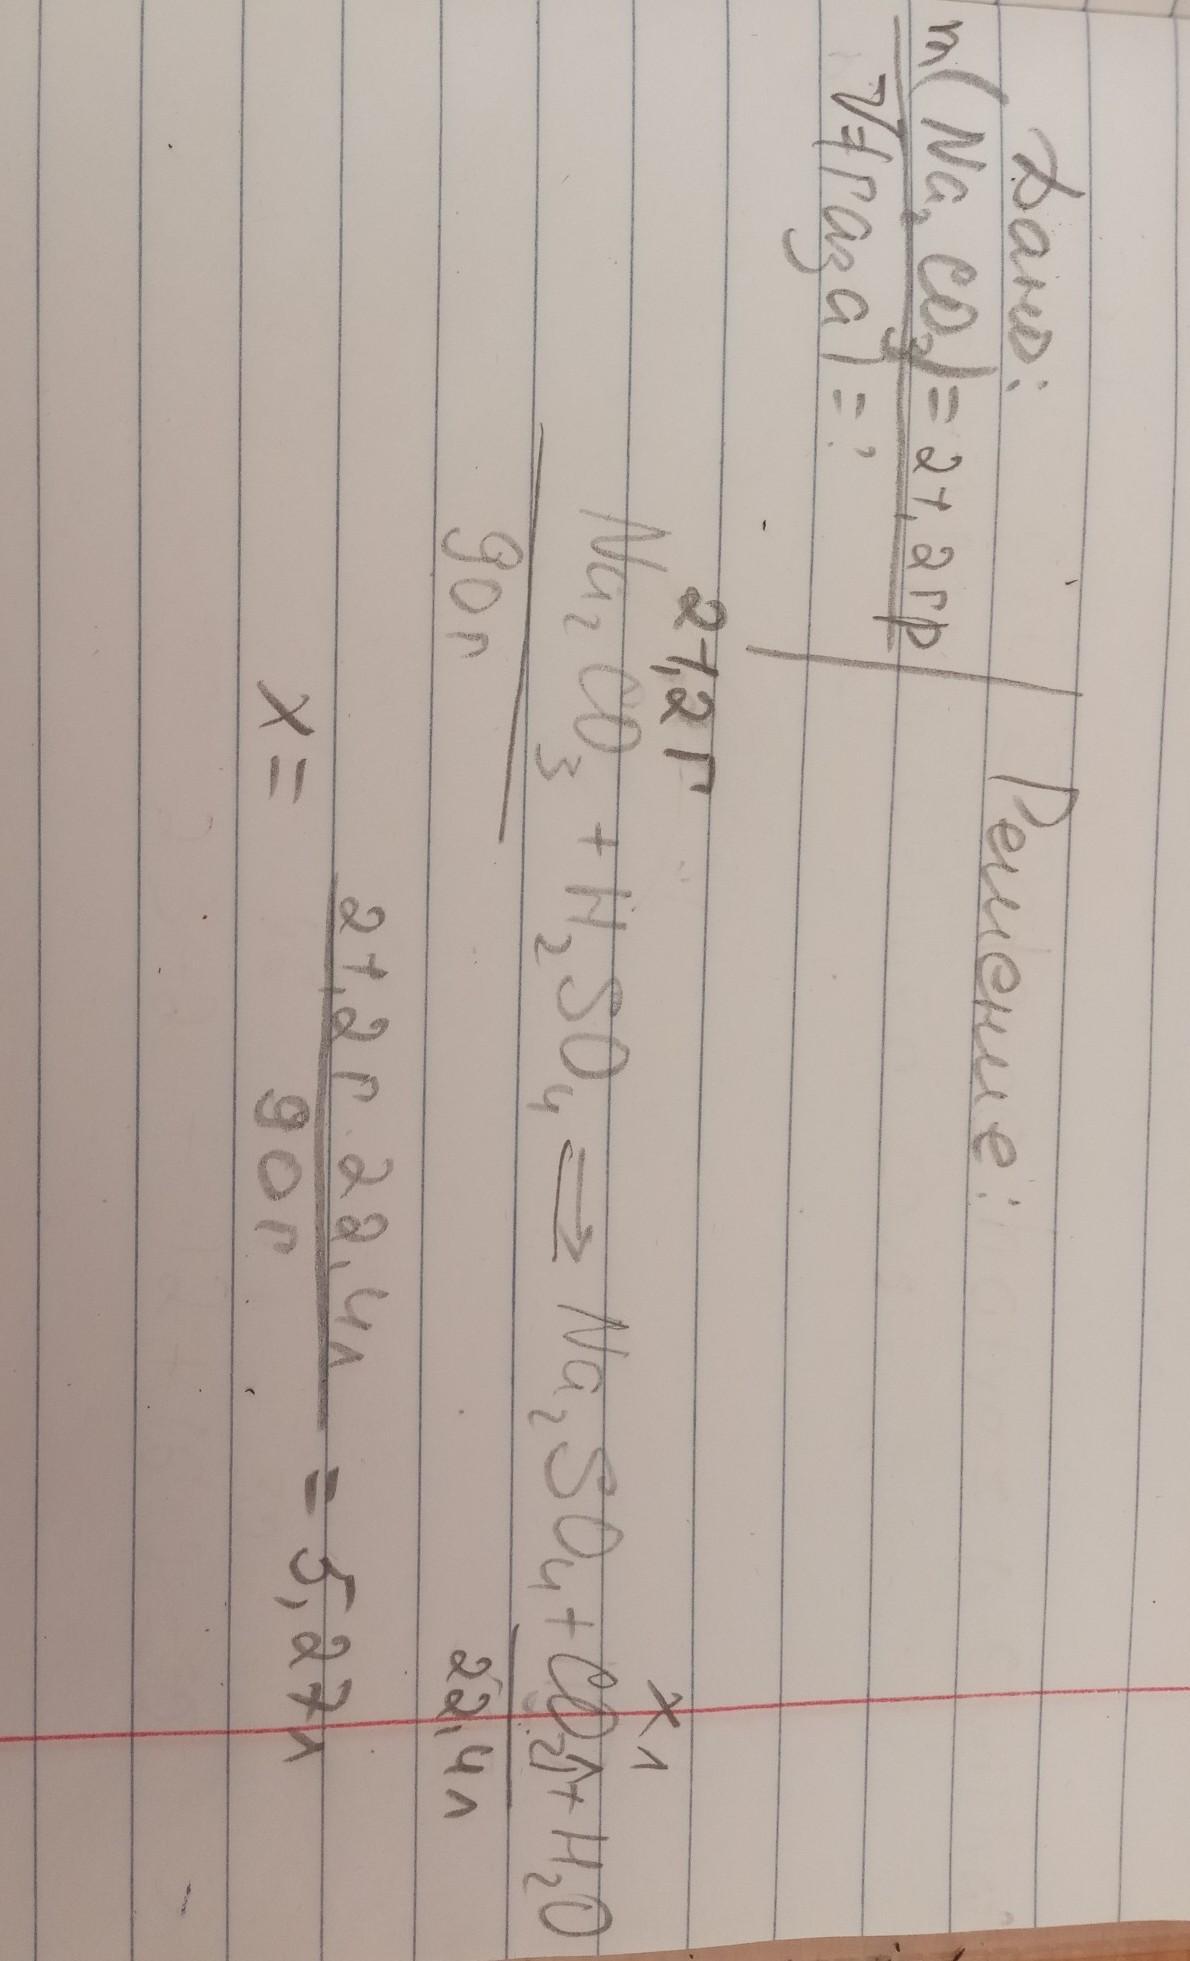 Дано:
m(Na₂CO₃) = 21,2 гр
V(газа) = ?
Решение:
21,2 г
x л
Na₂CO₃ + H₂SO₄ ⟶ Na₂SO₄ + CO₂↑ + H₂O
90 г
22,4 л
x = 21,2 г · 22,4 л / 90 г = 5,27 л